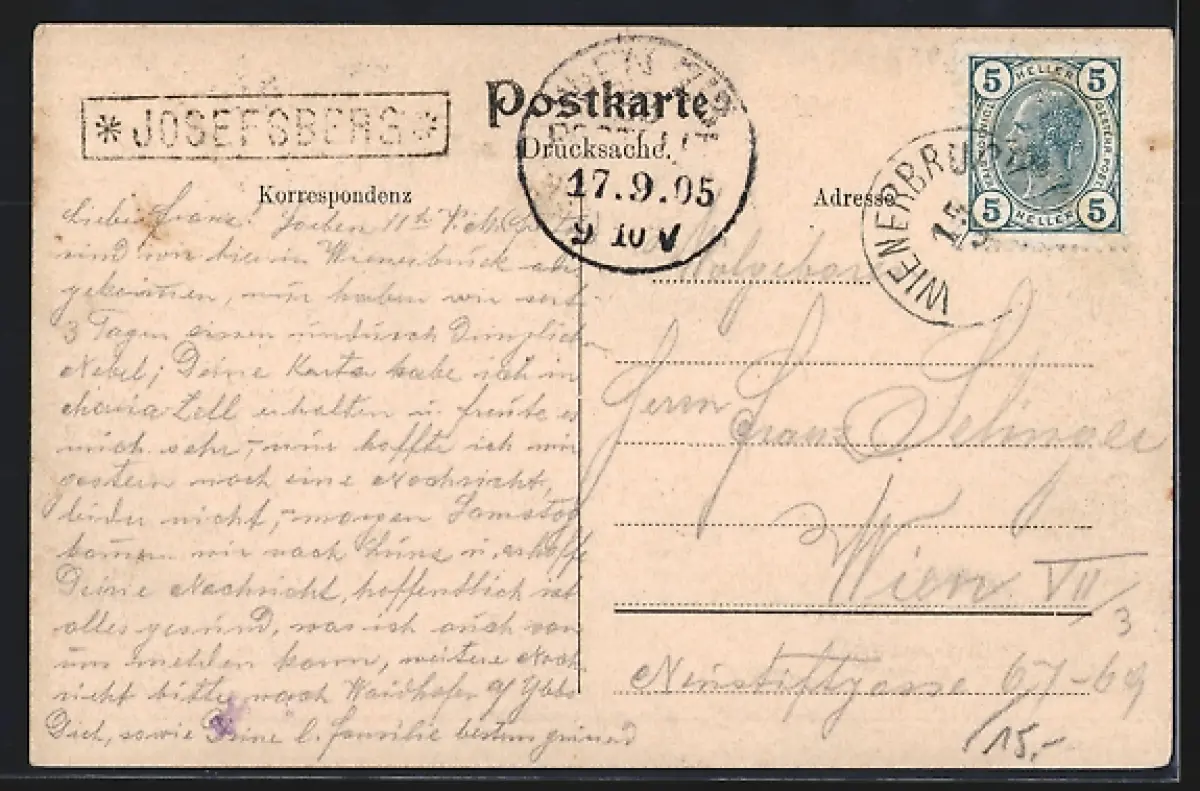 * JOSEFSBERG *
Postkarte
Drucksache.
17.9.05
9 10 V
5 HELLER 5
5 HELLER 5
WIENERBRUCK
15
Korrespondenz
Adresse
Lieber Franz! Soeben 11h
sind wir hier in Wienerbruck an-
gekommen, nun haben wir seit
3 Tagen einen
Nebel; Deine Karte habe ich in
Maria Zell erhalten u. freute es
mich sehr,- nun hoffte ich mir
gestern noch eine Nachricht,
leider nicht,- morgen Samstag
kommen wir nach Lunz u. erhoffe
Deine Nachricht, hoffentlich ist
alles gesund, was ich auch von
uns melden kann, weitere Nach-
richt bitte nach Waidhofen a/ Ybbs
Dich, sowie Deine l. Familie bestens grüssend
Wolgeboren
Herrn Franz
Wien VII/3
Neustiftgasse 67-69
15,-